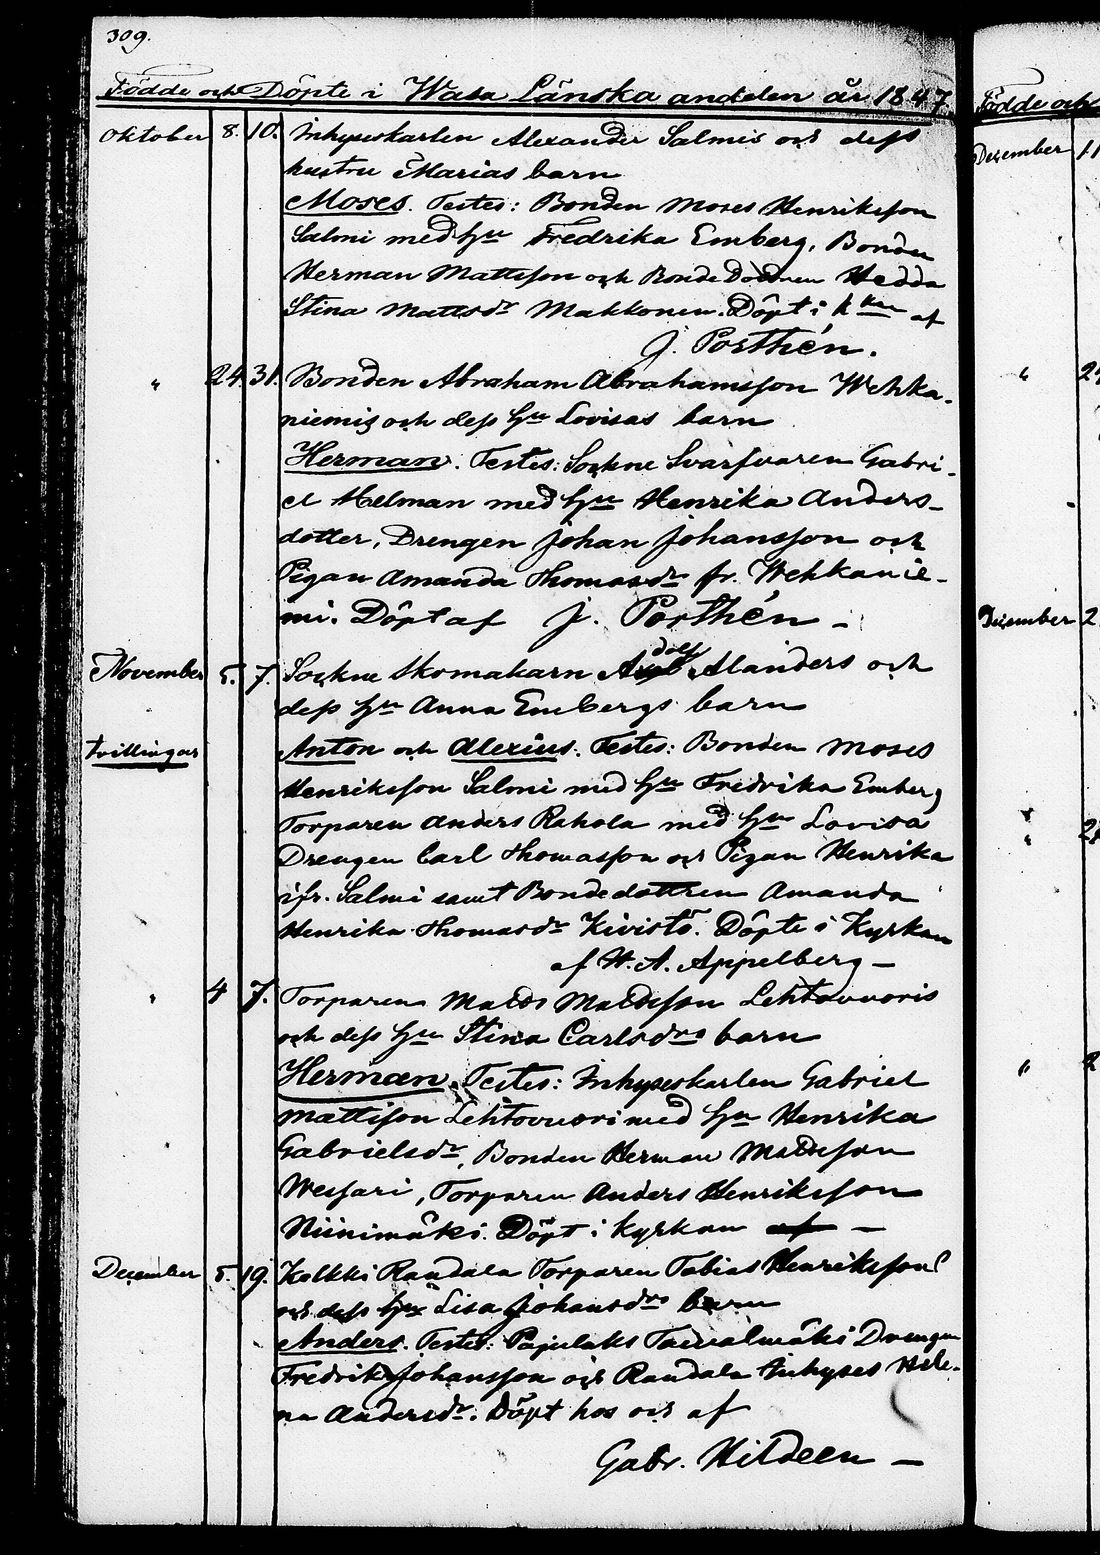 309.
Födde och Döpte i Wasa Länska andelen år 1847.
Födde och
Oktober 8. 10. Inhyseskarlen Alexander Salmis och dess
hustru Marias barn
Moses. Testes: Bonden Moses Henriksson
Salmi med hu Fredrika Emberg, Bonden
Herman Mattsson och BondeDottren Hedda
Stina Mattsdr Makkonen. Döpt i kkan af
J. Porthén.
" 24. 31. Bonden Abraham Abrahamsson Wehka-
niemis och dess hu Lovisas barn
Herman. Testes: Sockne Svarfvaren Gabri-
el Helman med hu Henrika Anders-
dotter, Drengen Johan Johansson och
Pigan Amanda Thomasdr fr. Wehkanie-
mi. Döpt af J. Porthén -
November 5. 7. Sockne Skomakarn Adolf Alanders och
dess hu Anna Embergs barn
tvillingar Anton och Alexius. Testes: Bonden Moses
Henriksson Salmi med hu Fredrika Emberg
Torparen Anders Rahola med hu Lovisa
Drengen Carl Thomasson och Pigan Henrika
ifr. Salmi samt Bondedottren Amanda
Henrika Thomasdr Kivistö. Döpte i Kyrkan
af W. A. Appelberg -
" 4 7. Torparen Matts Mattsson Lehtovuoris
och dess hu Stina Carlsdrs barn
Herman. Testes: Inhyseskarlen Gabriel
Mattsson Lehtovuori med hu Henrika
Gabrielsdr, Bonden Herman Mattsson
Wessari, Torparen Anders Henriksson
Niinimäki. Döpt i kyrkan af -
December 5. 19. Kolkki Randala Torparen Tobias Henrikssons
och dess hu Lisa Johansdrs barn
Anders. Testes: Drengen
Fredrik Johansson och Randala Inhyses Hele-
na Andersdr. Döpt hos oss af
Gabr. Hildeen -
December 11
" 24
December 2
" 28
" 2